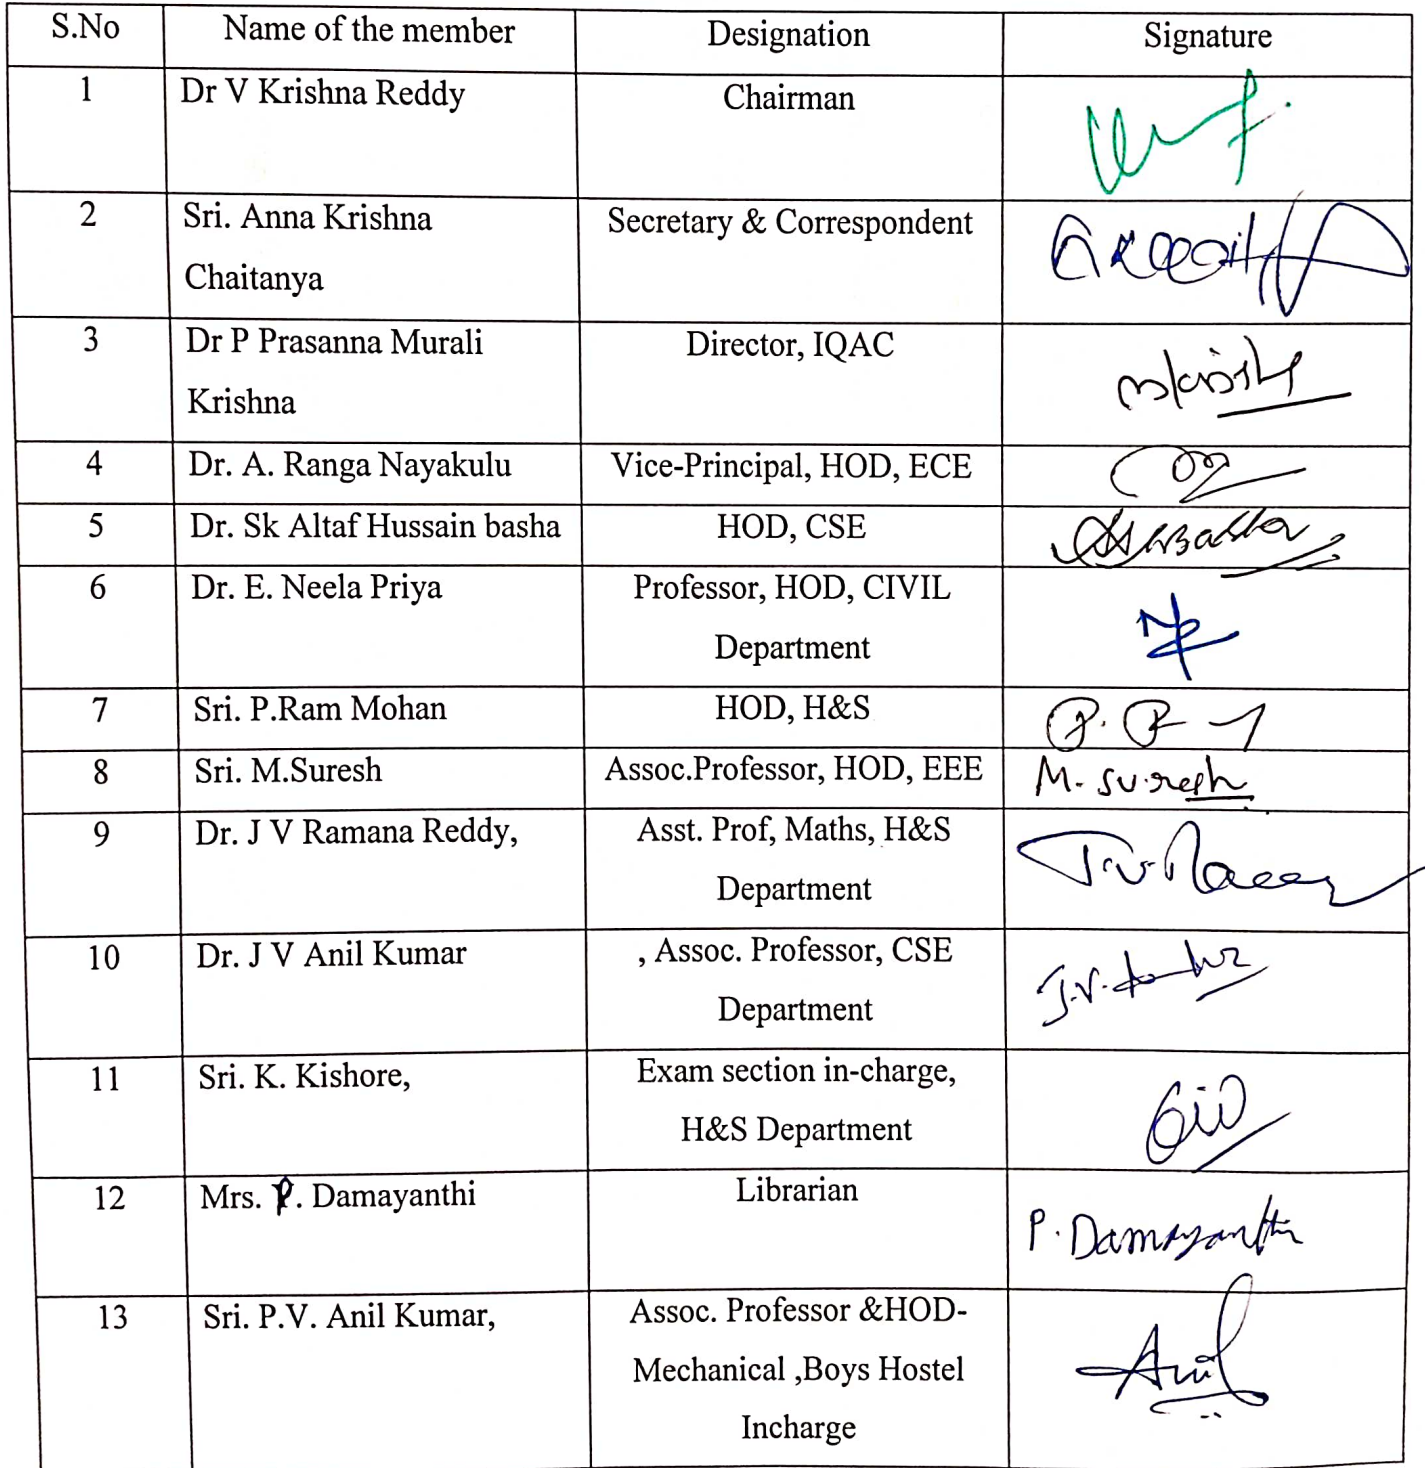 S.No Name of the member Designation Signature
1 Dr V Krishna Reddy Chairman
2 Sri. Anna Krishna Secretary & Correspondent
Chaitanya
3 Dr P Prasanna Murali Director, IQAC
Krishna
4 Dr. A. Ranga Nayakulu Vice-Principal, HOD, ECE
5 Dr. Sk Altaf Hussain basha HOD, CSE
6 Dr. E. Neela Priya Professor, HOD, CIVIL
Department
7 Sri. P.Ram Mohan HOD, H&S
8 Sri. M.Suresh Assoc.Professor, HOD, EEE M. Suresh
9 Dr. J V Ramana Reddy, Asst. Prof, Maths, H&S
Department
10 Dr. J V Anil Kumar , Assoc. Professor, CSE
Department
11 Sri. K. Kishore, Exam section in-charge,
H&S Department
12 Mrs. P. Damayanthi Librarian P. Damayanthi
13 Sri. P.V. Anil Kumar, Assoc. Professor &HOD-
Mechanical ,Boys Hostel Anil
Incharge